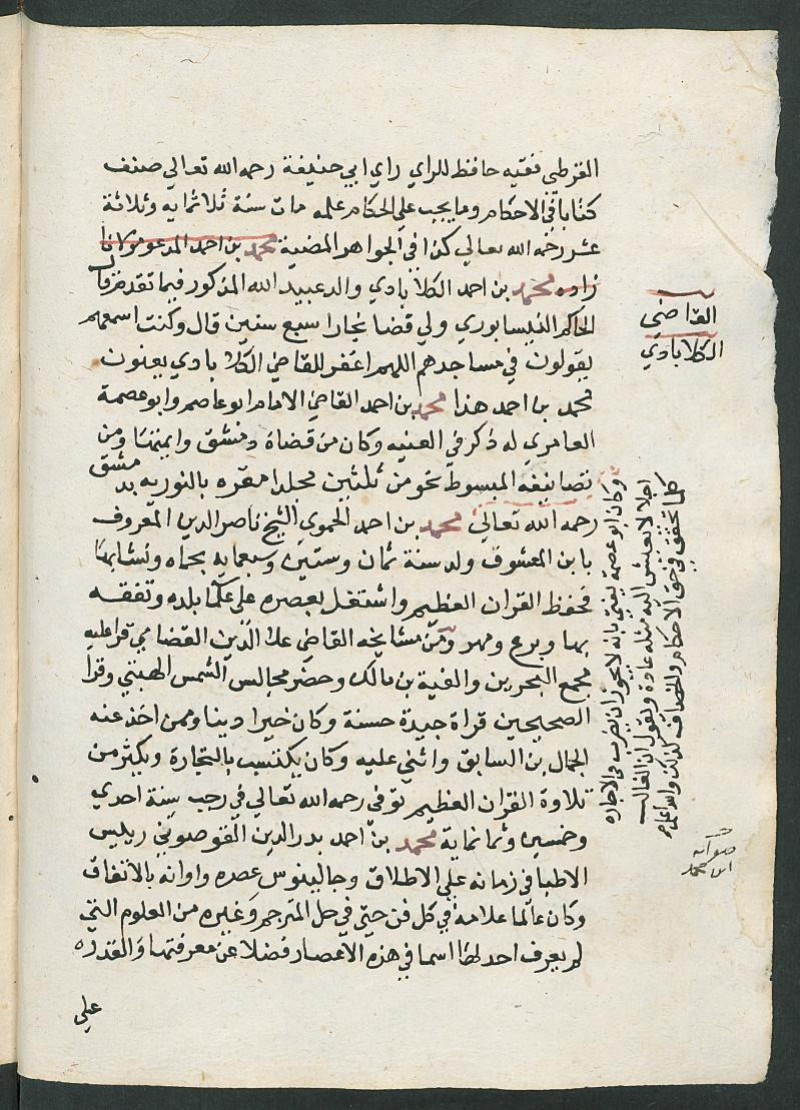 القرطبي فقيه حافظ للراي راي ابي حنيفة رحمه الله تعالي صنف
كتابا في الاحكام وما يجب علي الحكام علمه مات سنة ثلاثمايه وثلاثة
عشر رحمه الله تعالي كذا في الجواهر المضية محمد بن احمد المدعو مولانا
زاده محمد بن احمد الكلابادي والد عبيد الله المذكور فيما تقدم قال
الحاكم النيسابوري ولي قضا بخارا سبع سنين قال وكنت اسمعهم
يقولون في مساجدهم اللهم اغفر للقاضي الكلابادي يعنون
محمد بن احمد هذا محمد بن احمد القاضي الامام ابو عاصم وابو عصمة
العامري له ذكر في القنيه وكان من قضاة دمشق وايمتها ومن
تصانيفه المبسوط نحو من ثلثين مجلدا مقره بالنوريه بدمشق
رحمه الله تعالي محمد بن احمد الحموي الشيخ ناصر الدين المعروف
بابن المعشوق ولد سنة ثمان وستين وسبعمايه بحماه ونشا بها
فحفظ القران العظيم واشتغل بعصره علي علما بلده وتفقه
بها وبرع ومهر ومن مشايخه القاضي علا الدين القضامي قرا عليه
مجمع البحرين والفية بن مالك وحضر مجالس الشمس الهيتي وقرا
الصحيحين قراة جيدة حسنة وكان خيرا دينا وممن اخذ عنه
الجمال بن السابق واثني عليه وكان يكتسب بالتجارة ويكثر من
تلاوة القران العظيم توفي رحمه الله تعالي في رجب سنة احدي
وخمسين وثمانماية محمد بن احمد بدر الدين القوصوني ريليس
الاطبا في زمانه علي الاطلاق وجالينوس عصره واوانه بالاتفاق
وكان عالما علامة في كل فن حتي في حل المترجم وغيره من العلوم التي
لم يعرف احد لها اسما في هذه الاعصار فضلا عن معرفتها والقدره
علي
القاضي
الكلابادي
وكان ابو عصمة يفتي بانه لا يجوز ان يضرب في الاجاره
اجلا لا يعيش اليه مثله عادة ويقول ان الغالب
كالمتحقق في حق الاحكام والخصاف كذلك والله اعلم
صوابه
ابن محمد